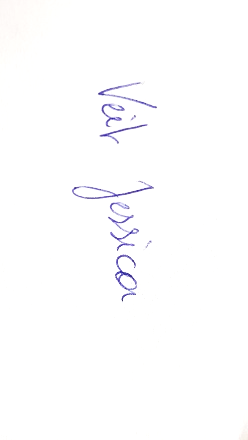 Veit Jessica